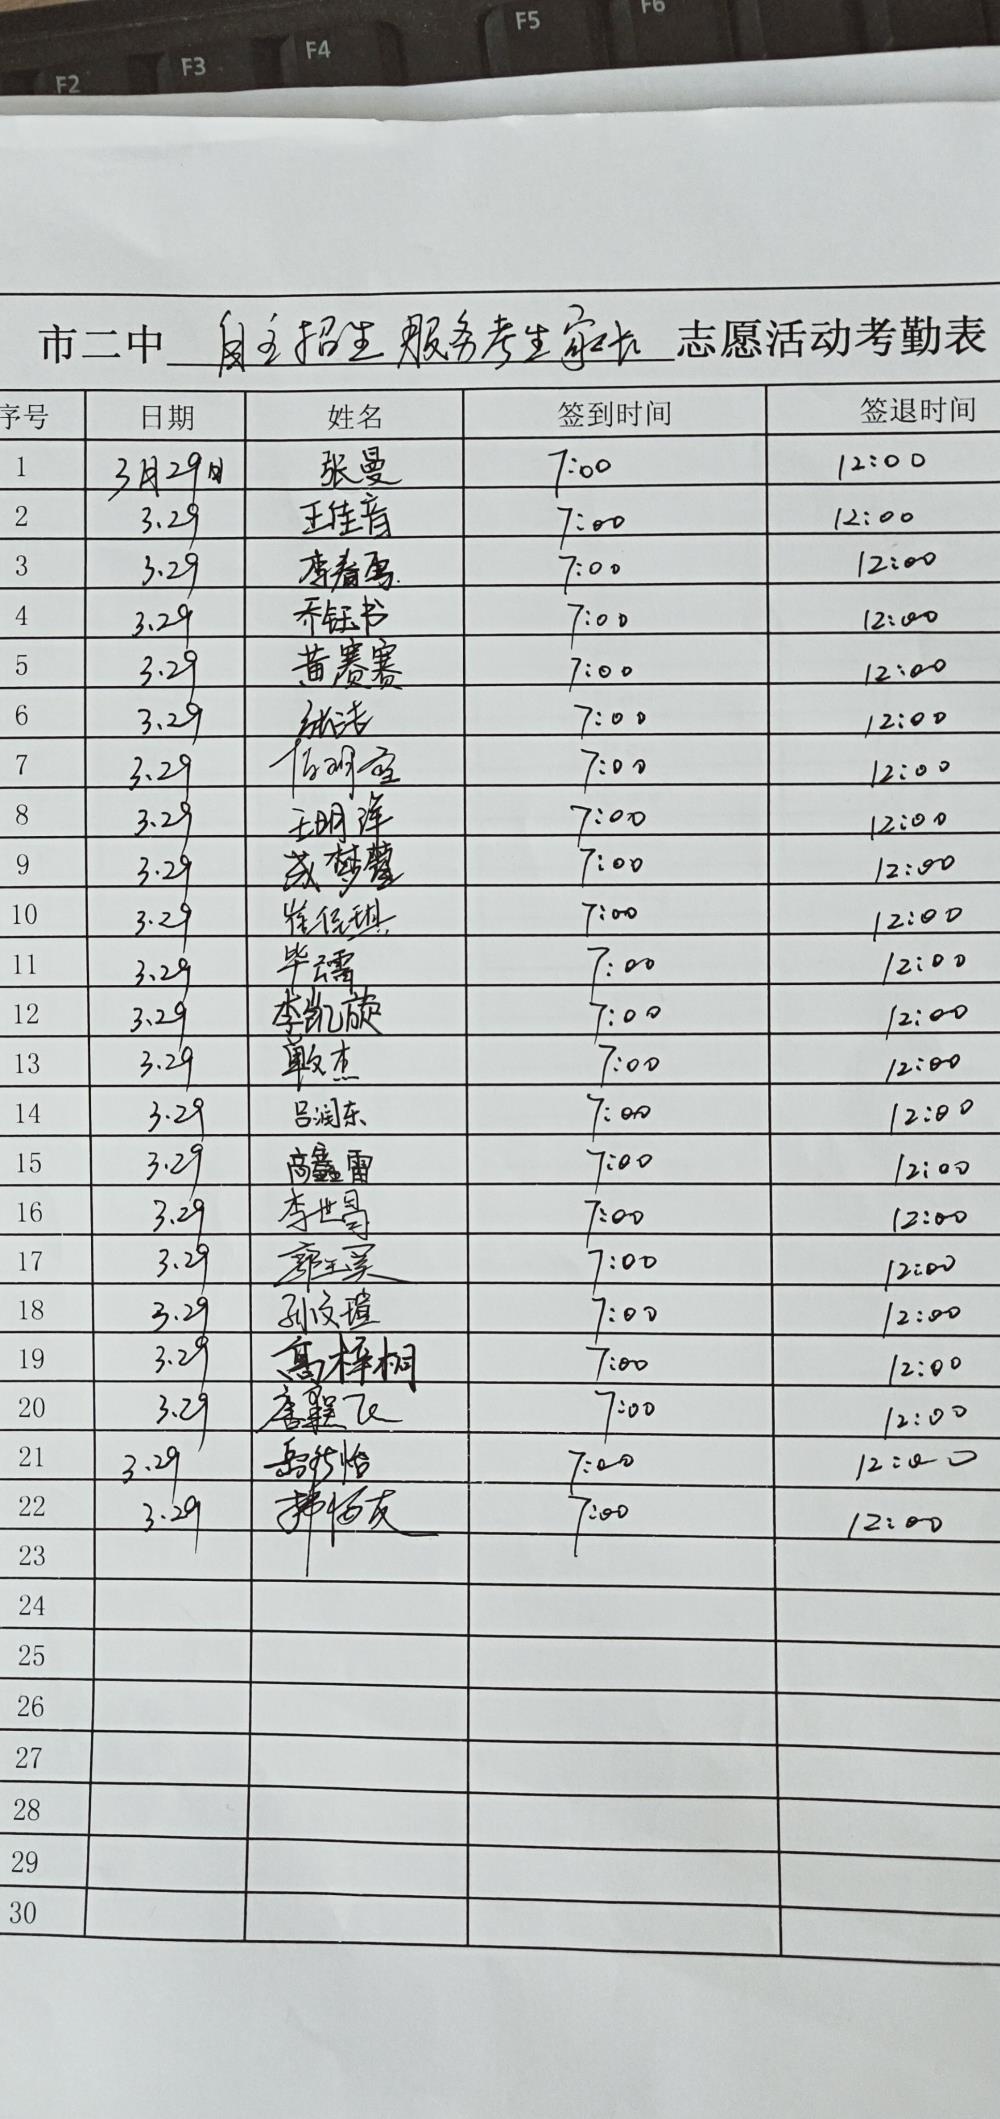 F2 F3 F4 F5 F6
市二中 自主招生服务考生家长 志愿活动考勤表
序号 日期 姓名 签到时间 签退时间
1 3月29日 张曼 7:00 12:00
2 3.29 王佳音 7:00 12:00
3 3.29 李春雨 7:00 12:00
4 3.29 乔钰书 7:00 12:00
5 3.29 黄赛赛 7:00 12:00
6 3.29 张洁 7:00 12:00
7 3.29 7:00 12:00
8 3.29 王明洋 7:00 12:00
9 3.29 7:00 12:00
10 3.29 7:00 12:00
11 3.29 毕 7:00 12:00
12 3.29 李凯旋 7:00 12:00
13 3.29 7:00 12:00
14 3.29 吕润东 7:00 12:00
15 3.29 高鑫雷 7:00 12:00
16 3.29 李世昌 7:00 12:00
17 3.29 7:00 12:00
18 3.29 孙文瑄 7:00 12:00
19 3.29 高梓桐 7:00 12:00
20 3.29 7:00 12:00
21 3.29 7:00 12:00
22 3.29 7:00 12:00
23
24
25
26
27
28
29
30